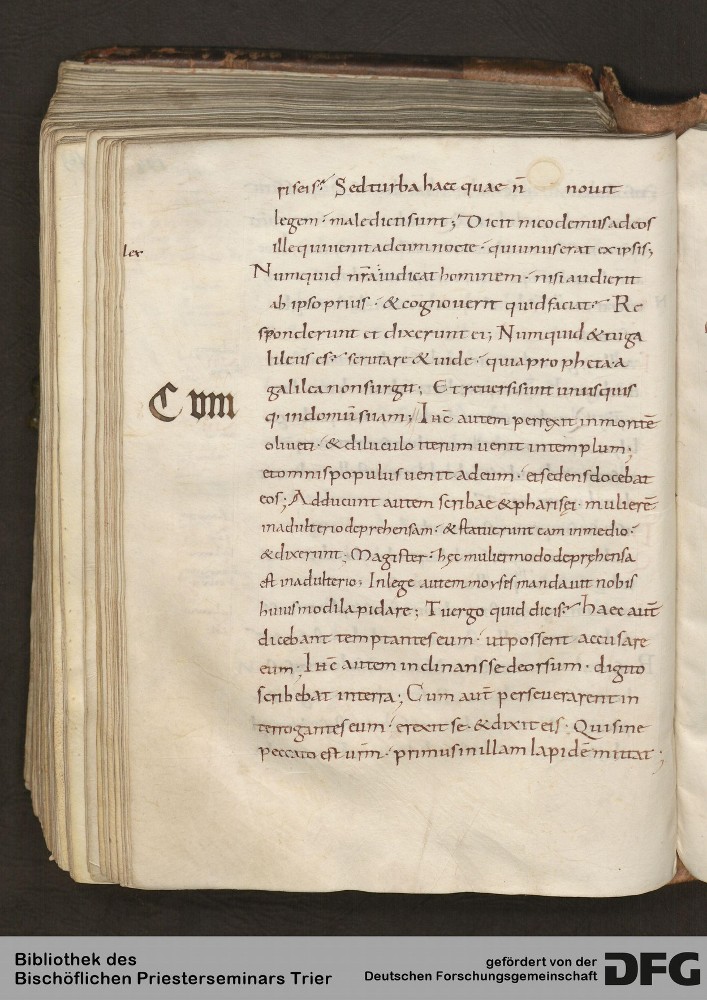 riseis? Sed turba haec quae n̄ nouit
legem · maledicti sunt; Dicit nicodemus ad eos
ille qui uenit ad eum nocte · qui unus erat ex ipsis;
lex
Numquid nr̄a iudicat hominem · nisi audierit
ab ipso prius · & cognouerit quid faciat? Re
sponderunt et dixerunt ei; Numquid & tu ga
lileus es? scrutare & uide · quia propheta a
galilea non surgit; Et reuersi sunt unusquis
Cum
q; in domū suam; Ihc̄ autem perrexit in montē
oliueti · & diluculo iterum uenit in templum;
et omnis populus uenit ad eum · et sedens docebat
eos; Adducunt autem scribae & pharisęi · mulierē
in adulterio deprehensam · & statuerunt eam in medio ·
& dixerunt; Magister · hęc mulier modo depręhensa
est in adulterio; In lege autem moyses mandauit nobis
huiusmodi lapidare; Tu ergo quid dicis? haec aut̄
dicebant temptantes eum · ut possent accusare
eum; Ihc̄ autem inclinans se deorsum · digito
scribebat in terra; Cum aut̄ perseuerarent in
terrogantes eum · erexit se · & dixit eis · Qui sine
peccato est ur̄m · primus in illam lapidē mittat;
Bibliothek des
Bischöflichen Priesterseminars Trier
gefördert von der
Deutschen Forschungsgemeinschaft
DFG